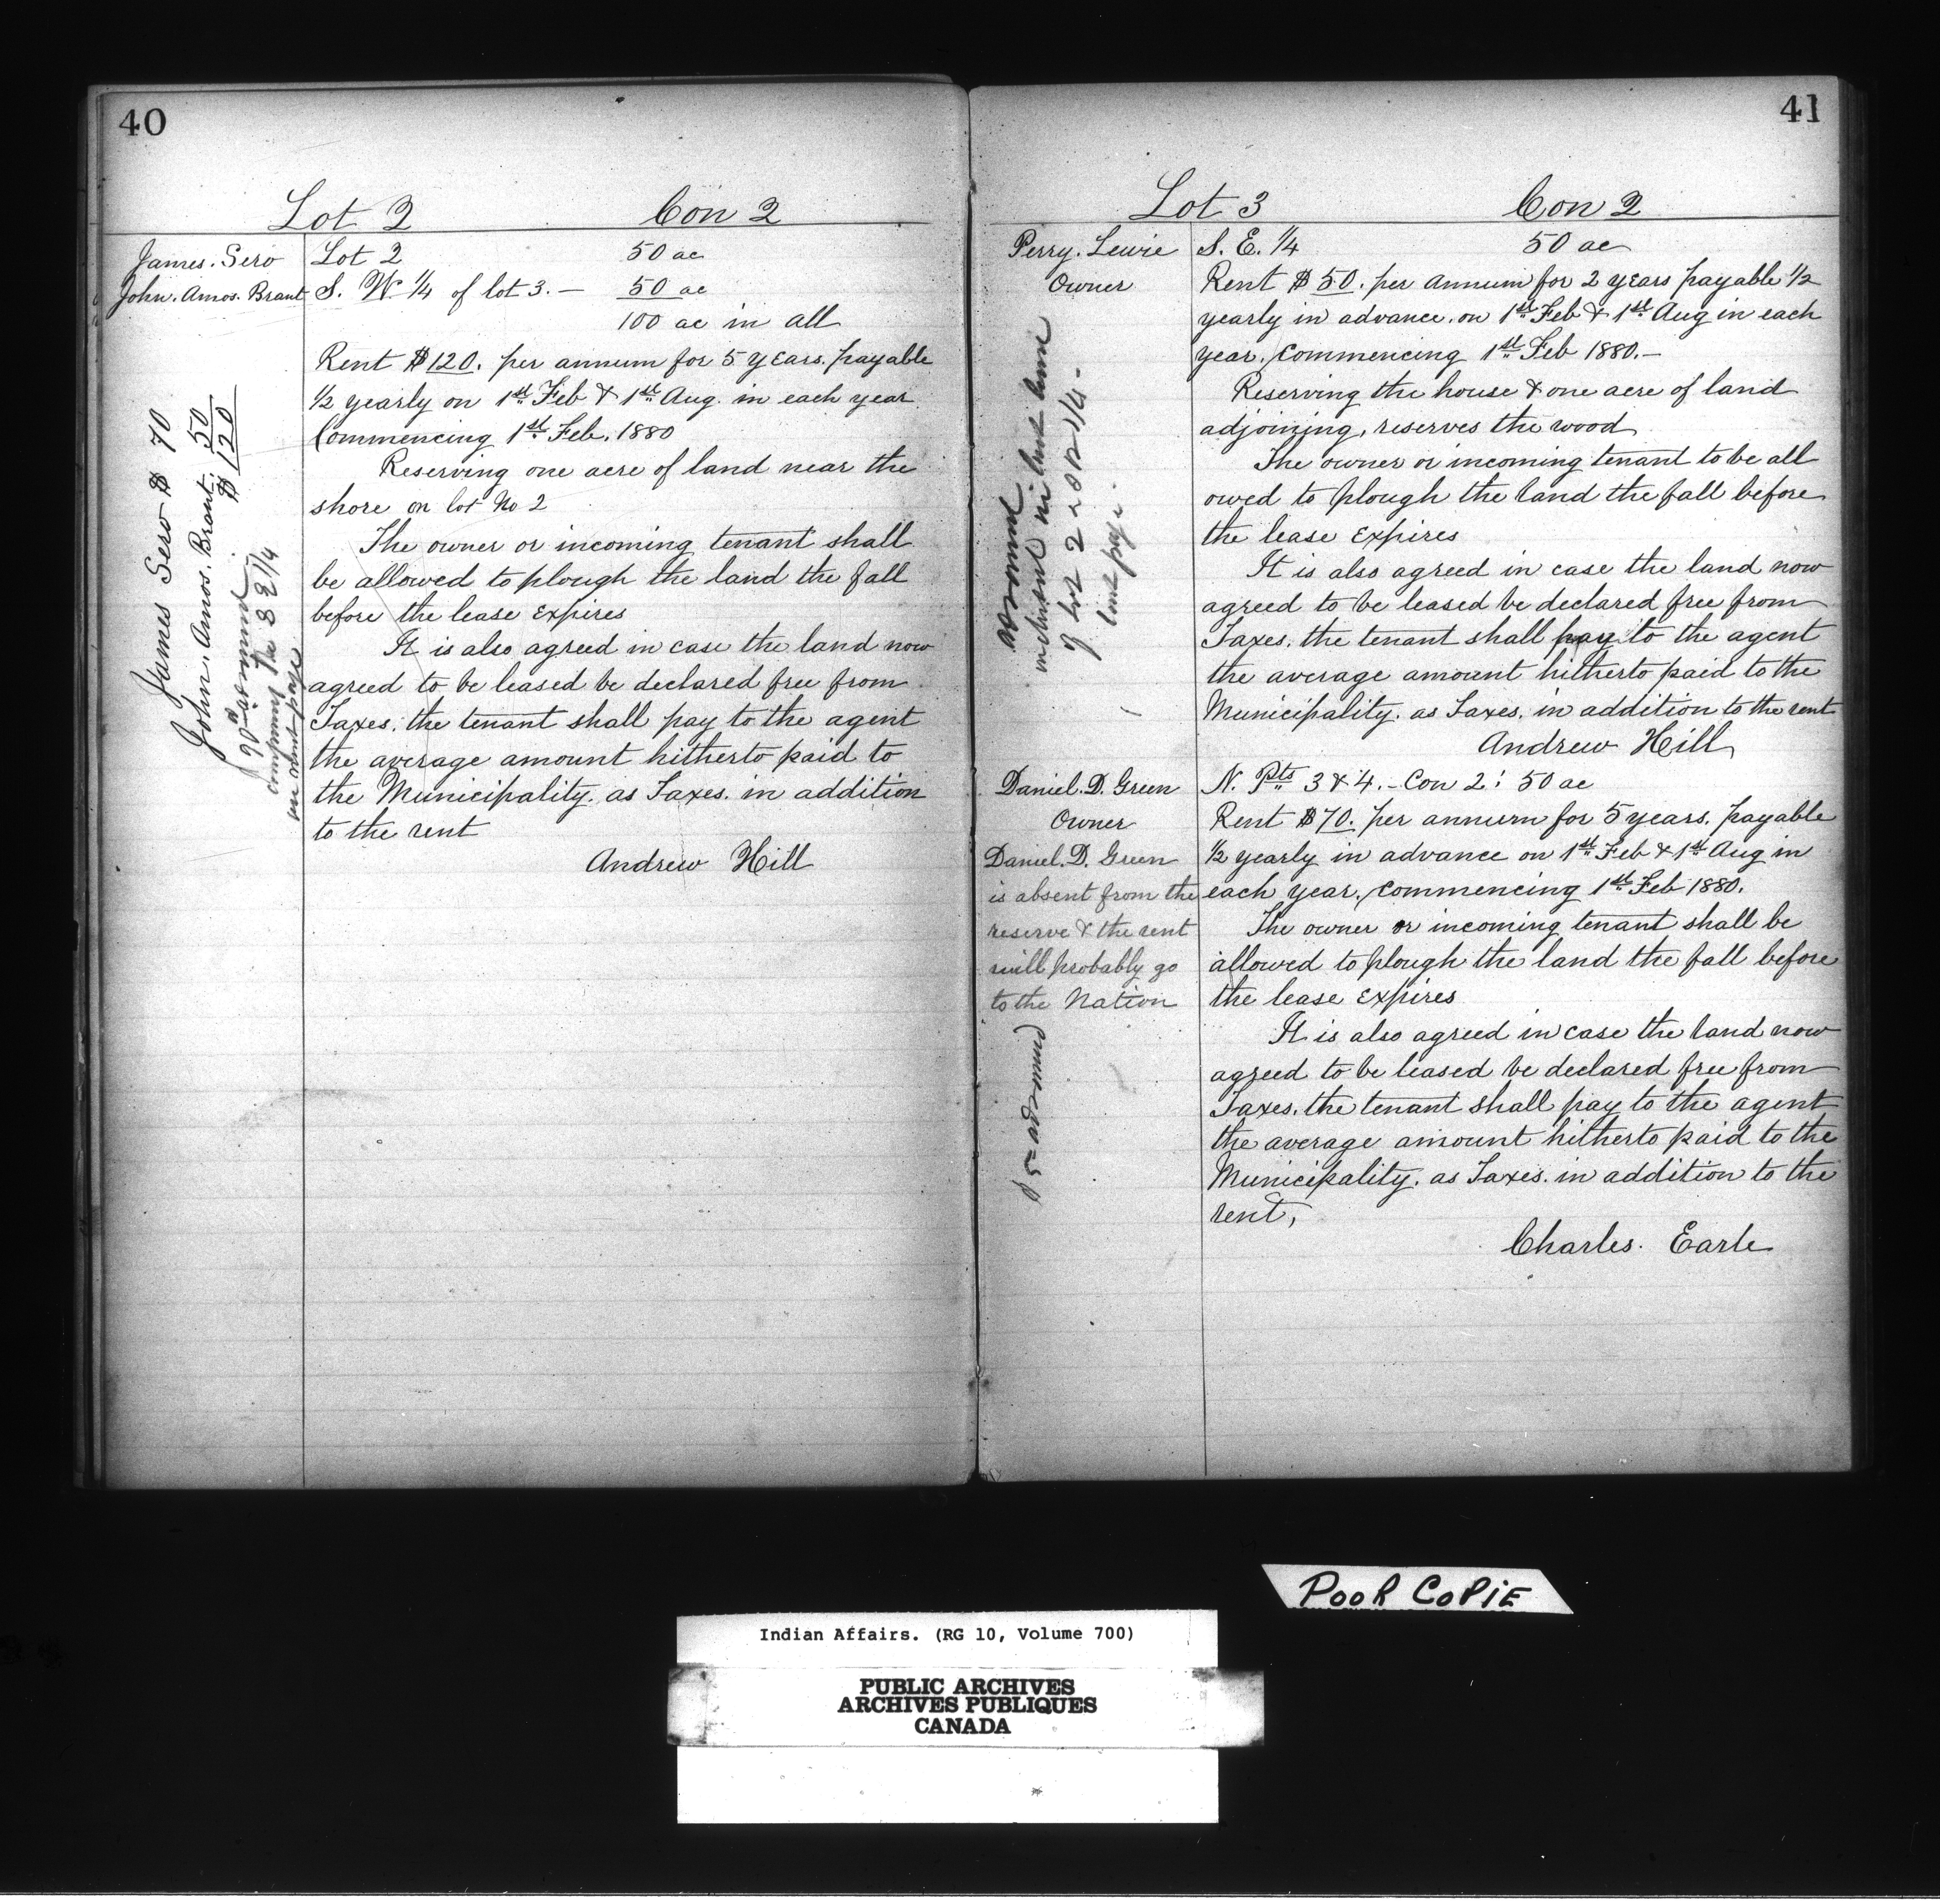 40
Lot 2 Con 2
James. Sero
John. Amos. Brant
Lot 2 50 ac
S. W 1/4 of lot 3. — 50 ac
100 ac in all
Rent $120. per annum for 5 years. payable
1/2 yearly on 1st Feb & 1st Aug. in each year
Commencing 1st Feb. 1880
Reserving one acre of land near the
shore on lot No 2
The owner or incoming tenant shall
be allowed to plough the land the fall
before the lease Expires
It is also agreed in case the land now
agreed to be leased be declared free from
Taxes. the tenant shall pay to the agent
the average amount hitherto paid to
the Municipality. as Taxes. in addition
to the rent
Andrew Hill
James Sero $ 70
John. Amos. Brant. 50
$ 120
on next page
41
Lot 3 Con 2
Perry. Lewie
Owner
S. E. 1/4 50 ac
Rent $50. per annum for 2 years payable 1/2
yearly in advance. on 1st Feb & 1st Aug in each
year. Commencing 1st Feb 1880.—
Reserving the house & one acre of land
adjoining, reserves the wood
The owner or incoming tenant to be all
owed to plough the land the fall before
the lease Expires
It is also agreed in case the land now
agreed to be leased be declared free from
Taxes. the tenant shall pay to the agent
the average amount hitherto paid to the
Municipality. as Taxes. in addition to the rent
Andrew Hill
of lot 2
last page.
Daniel. D. Green
Owner
Daniel. D. Green
is absent from the
reserve & the rent
will probably go
to the Nation
N. Pts 3 & 4. - Con 2: 50 ac
Rent $70. per annum for 5 years. payable
1/2 yearly in advance on 1st Feb & 1st Aug in
each year. Commencing 1st Feb 1880.
The owner or incoming tenant shall be
allowed to plough the land the fall before
the lease Expires
It is also agreed in case the land now
agreed to be leased be declared free from
Taxes. the tenant shall pay to the agent
the average amount hitherto paid to the
Municipality. as Taxes. in addition to the
rent,
Charles. Earle
POOR COPIE
Indian Affairs. (RG 10, Volume 700)
PUBLIC ARCHIVES
ARCHIVES PUBLIQUES
CANADA